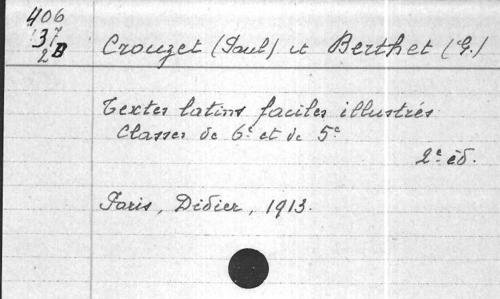 406
137
2B
Crouzet (Paul) et Berthet (G.)
Textes latins faciles illustrés
Classes de 6e et de 5e
2e éd.
Paris, Didier, 1913.